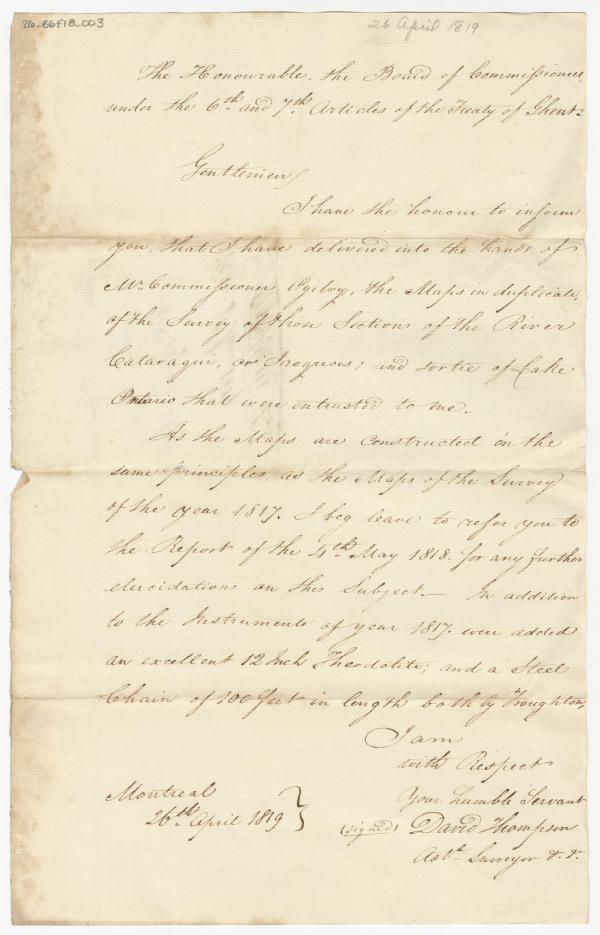 26-B6F18-003
26 April 1819
The Honourable, the Board of Commissioners,
under the 6th and 7th Articles of the Treaty of Ghent
Gentlemen
I have the honour to inform
you, that I have delivered into the hands of
Mr Commissioner Ogilvy, the Maps in duplicate,
of the Survey of those Sections of the River
Cataraqui, or Iroquois; and sortie of Lake
Ontario that were entrusted to me.
As the Maps are constructed on the
same principles, as the Maps of the Survey
of the year 1817. I beg leave to refer you to
the Report of the 4th May 1818. for any further
elucidations on this Subject.— In addition
to the Instruments of year 1817. were added
an excellent 12 Inch Theodolite; and a Steel
Chain of 100 feet in length both by Troughton,
I am
with Respect
Your humble Servant
Montreal
26th April 1819 }
(signed) David Thompson
Ast. Surveyor &. &.